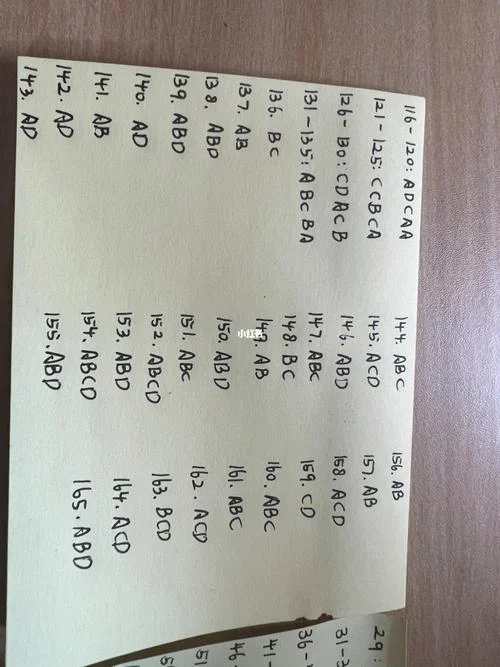 116-120: ADCAA
121-125: CCBCA
126-130: CDACB
131-135: ABCBA
136. BC
137. AB
138. ABD
139. ABD
140. AD
141. AB
142. AD
143. AD
144. ABC
145. ACD
146. ABD
147. ABC
148. BC
149. AB
150. ABD
151. ABC
152. ABCD
153. ABD
154. ABCD
155. ABD
156. AB
157. AB
158. ACD
159. CD
160. ABC
161. ABC
162. ACD
163. BCD
164. ACD
165. ABD
小红书
29:
31-3
36-
41-
46-
51